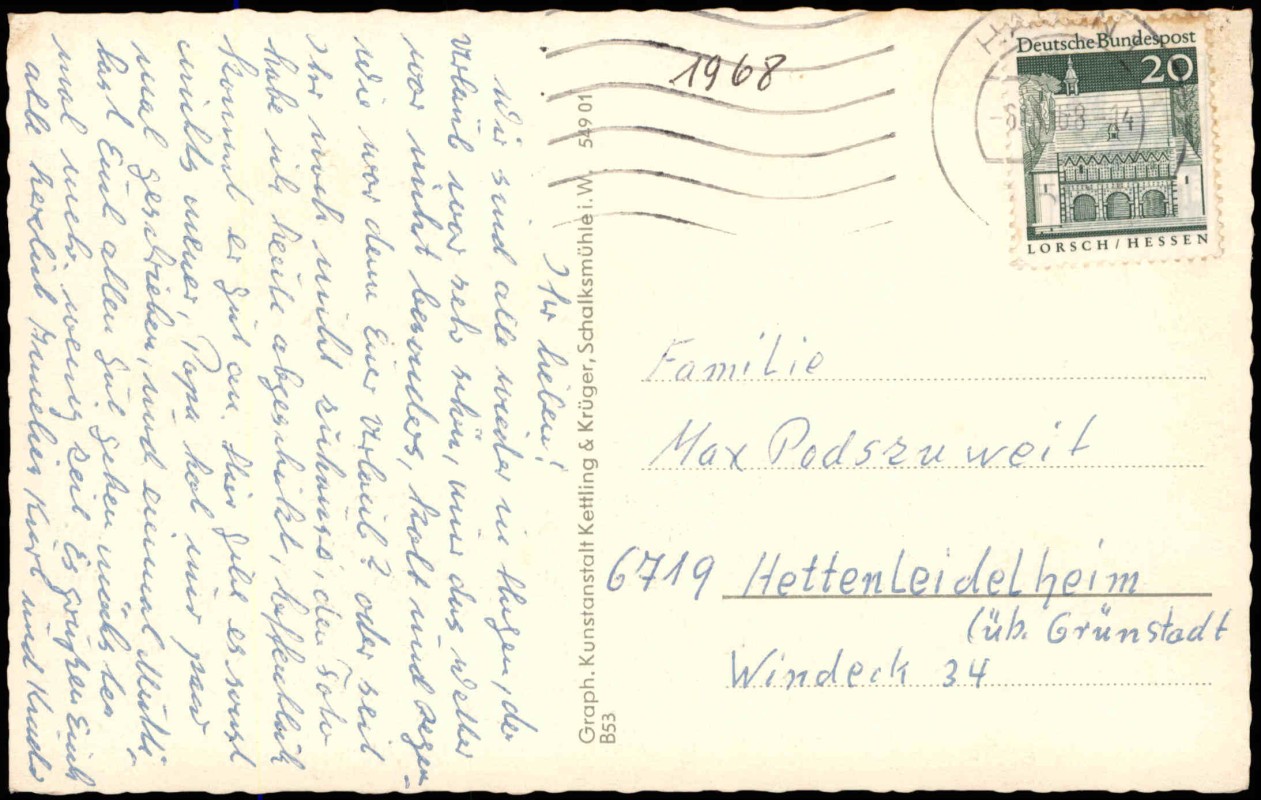 Ihr lieben!
Wir sind alle wieder in Hagen, der
Urlaub war sehr schön, nur das Wetter
war nicht besonders, kalt und Regen-
Wie war denn Euer Urlaub? oder seit
Ihr noch nicht zuhause, den
habe ich heute abgeschickt, hoffentlich
kommt er gut an. Hier gibt es sonst
nichts neues, Papa hat nur paar
mal geschrieben, und einmal Mutti.
hast Euch allen gut gehen nächstes
mal mehr, wenig Zeit Es grüßen Euch
alle herzlich Kurt und Kinder
Graph. Kunstanstalt Kettling & Krüger, Schalksmühle i. W. 549 01
B53
1968
Deutsche Bundespost
20
LORSCH / HESSEN
Familie
Max Podszuweit
6719 Hettenleidelheim
(üb. Grünstadt
Windeck 34